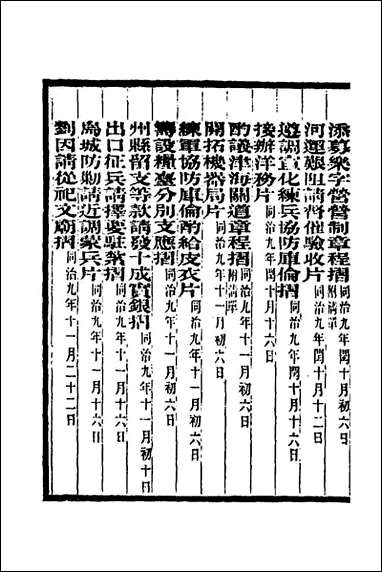 添募樂字營營制章程摺附清單同治九年閏十月初六日
河運艱阻請飭催驗收片同治九年閏十月十二日
遵調宣化練兵協防庫倫摺同治九年閏十月十六日
接辦洋務片同治九年閏十月十六日
酌議津海關道章程摺附清單同治九年十一月初六日
開拓機器局片同治九年十一月初六日
練軍協防庫倫酌給皮衣片同治九年十一月初六日
籌設糧臺分別支應摺同治九年十一月初六日
州縣留支等款請發十成實銀摺同治九年十一月初十日
出口征兵請擇要駐紮摺同治九年十一月十六日
烏城防勦請近調蒙兵片同治九年十一月十六日
劉因請從祀文廟摺同治九年十一月二十二日